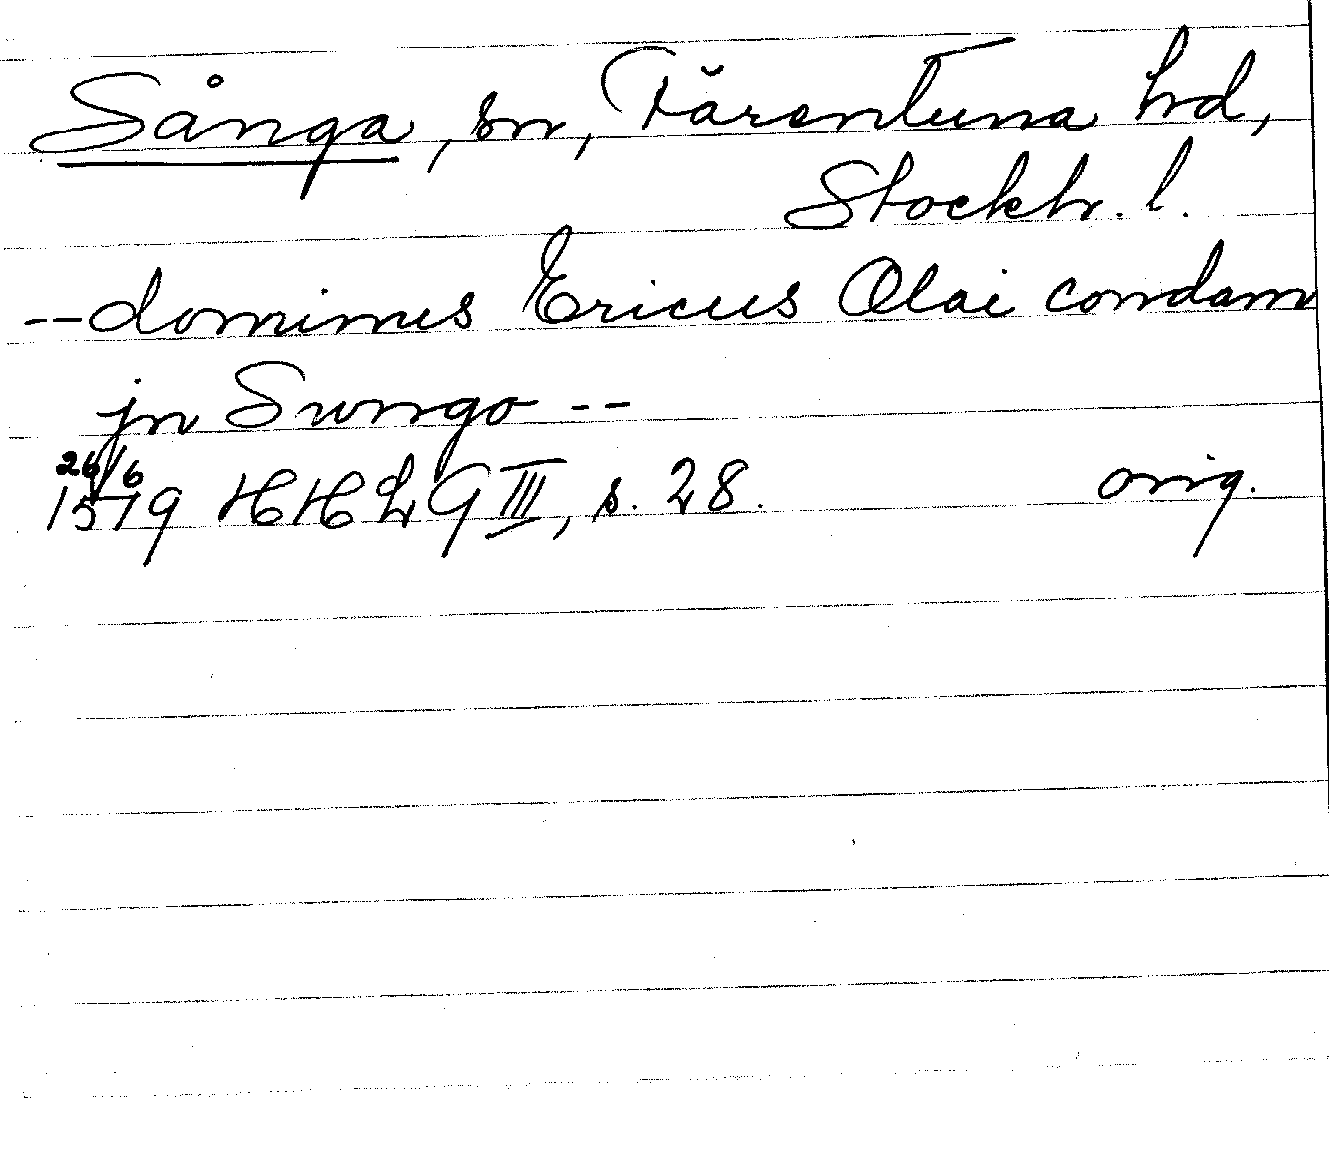 Sånga, sn, Färentuna hd,
Stockh. l.
--dominus Ericus Olai condam
jn Swngo --
26/6
1519 HHLG III, s. 28. orig.